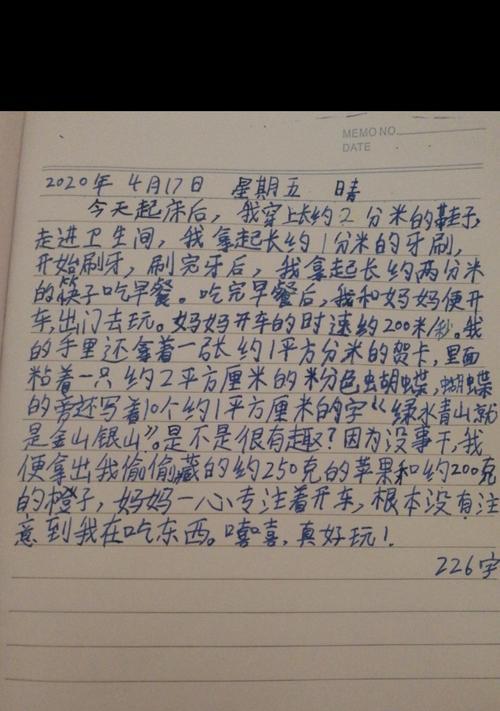 MEMO NO.
DATE
2020年 4月17日 星期五 晴
今天起床后，我穿上长约2分米的鞋子，
走进卫生间，我拿起长约1分米的牙刷，
开始刷牙，刷完牙后，我拿起长约两分米
的筷子吃早餐。吃完早餐后，我和妈妈便开
车出门去玩。妈妈开车的时速约200米/秒。我
的手里还拿着一张长约1平方分米的贺卡，里面
粘着一只约2平方厘米的粉色蝴蝶，蝴蝶
的旁还写着10个约1平方厘米的字“绿水青山就
是金山银山”。是不是很有趣？因为没事干，我
便拿出我偷偷藏的约250克的苹果和约200克
的橙子，妈妈一心专注着开车，根本没有注
意到我在吃东西。嘻嘻，真好玩！
226字